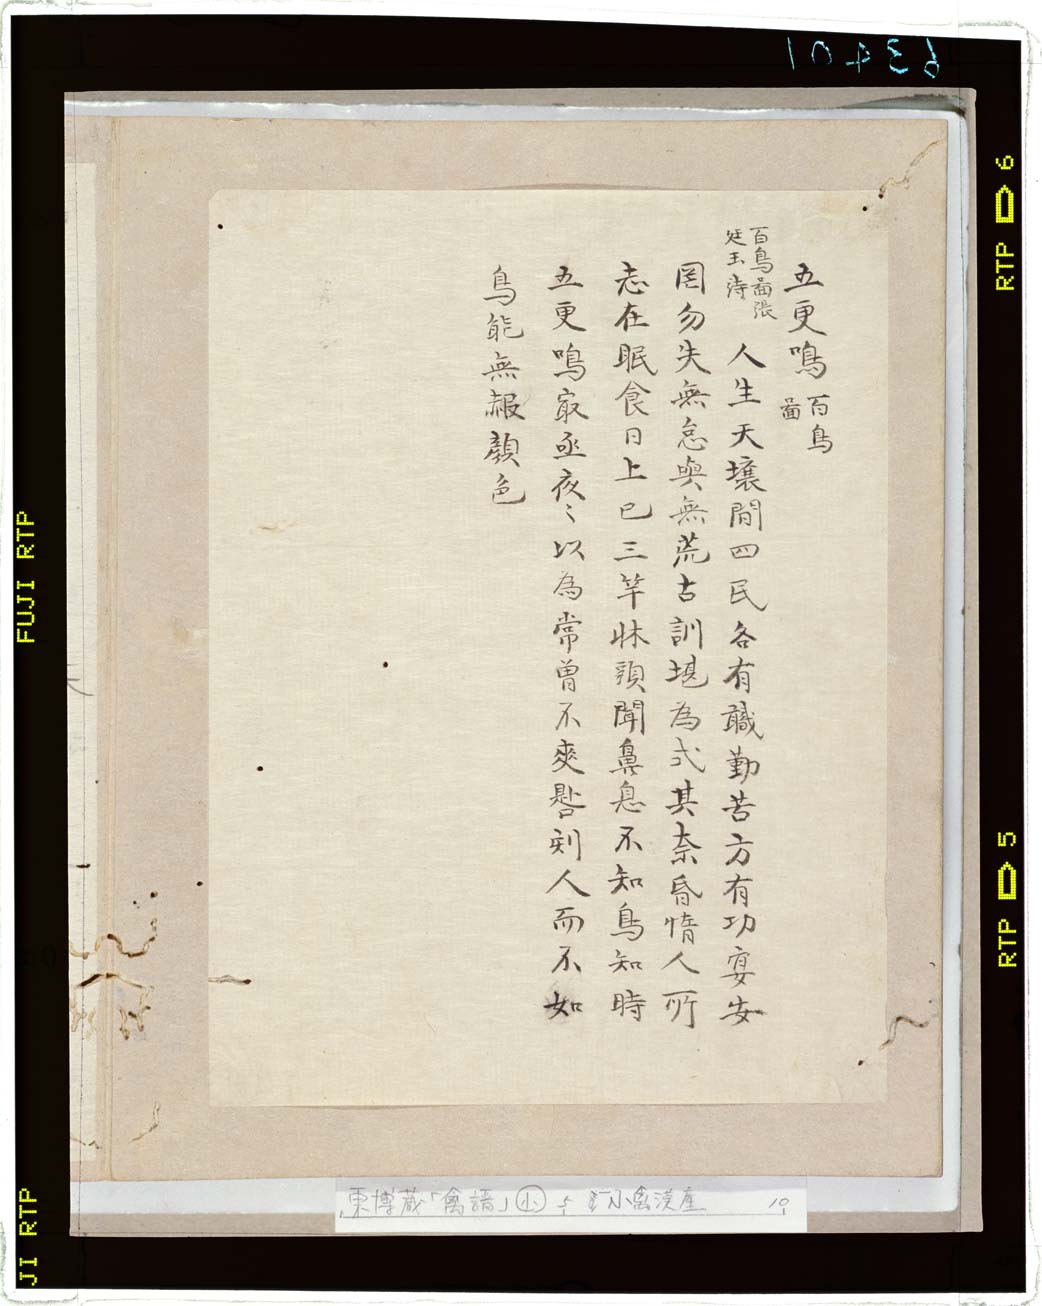 五更鳴 百鳥
啚
百鳥啚張
廷玉詩
人生天壤間四民各有職勤苦方有功宴安
罔勿失無怠與無荒古訓堪為式其奈昏惰人所
志在眠食日上已三竿牀頭聞鼻息不知鳥知時
五更鳴㝡亟夜〻以為常曾不爽晷刻人而不如
鳥能無赧顏色
東博蔵「禽譜」小 5 小禽漢産 10
FUJI RTP
JI RTP
RTP 6
RTP 5